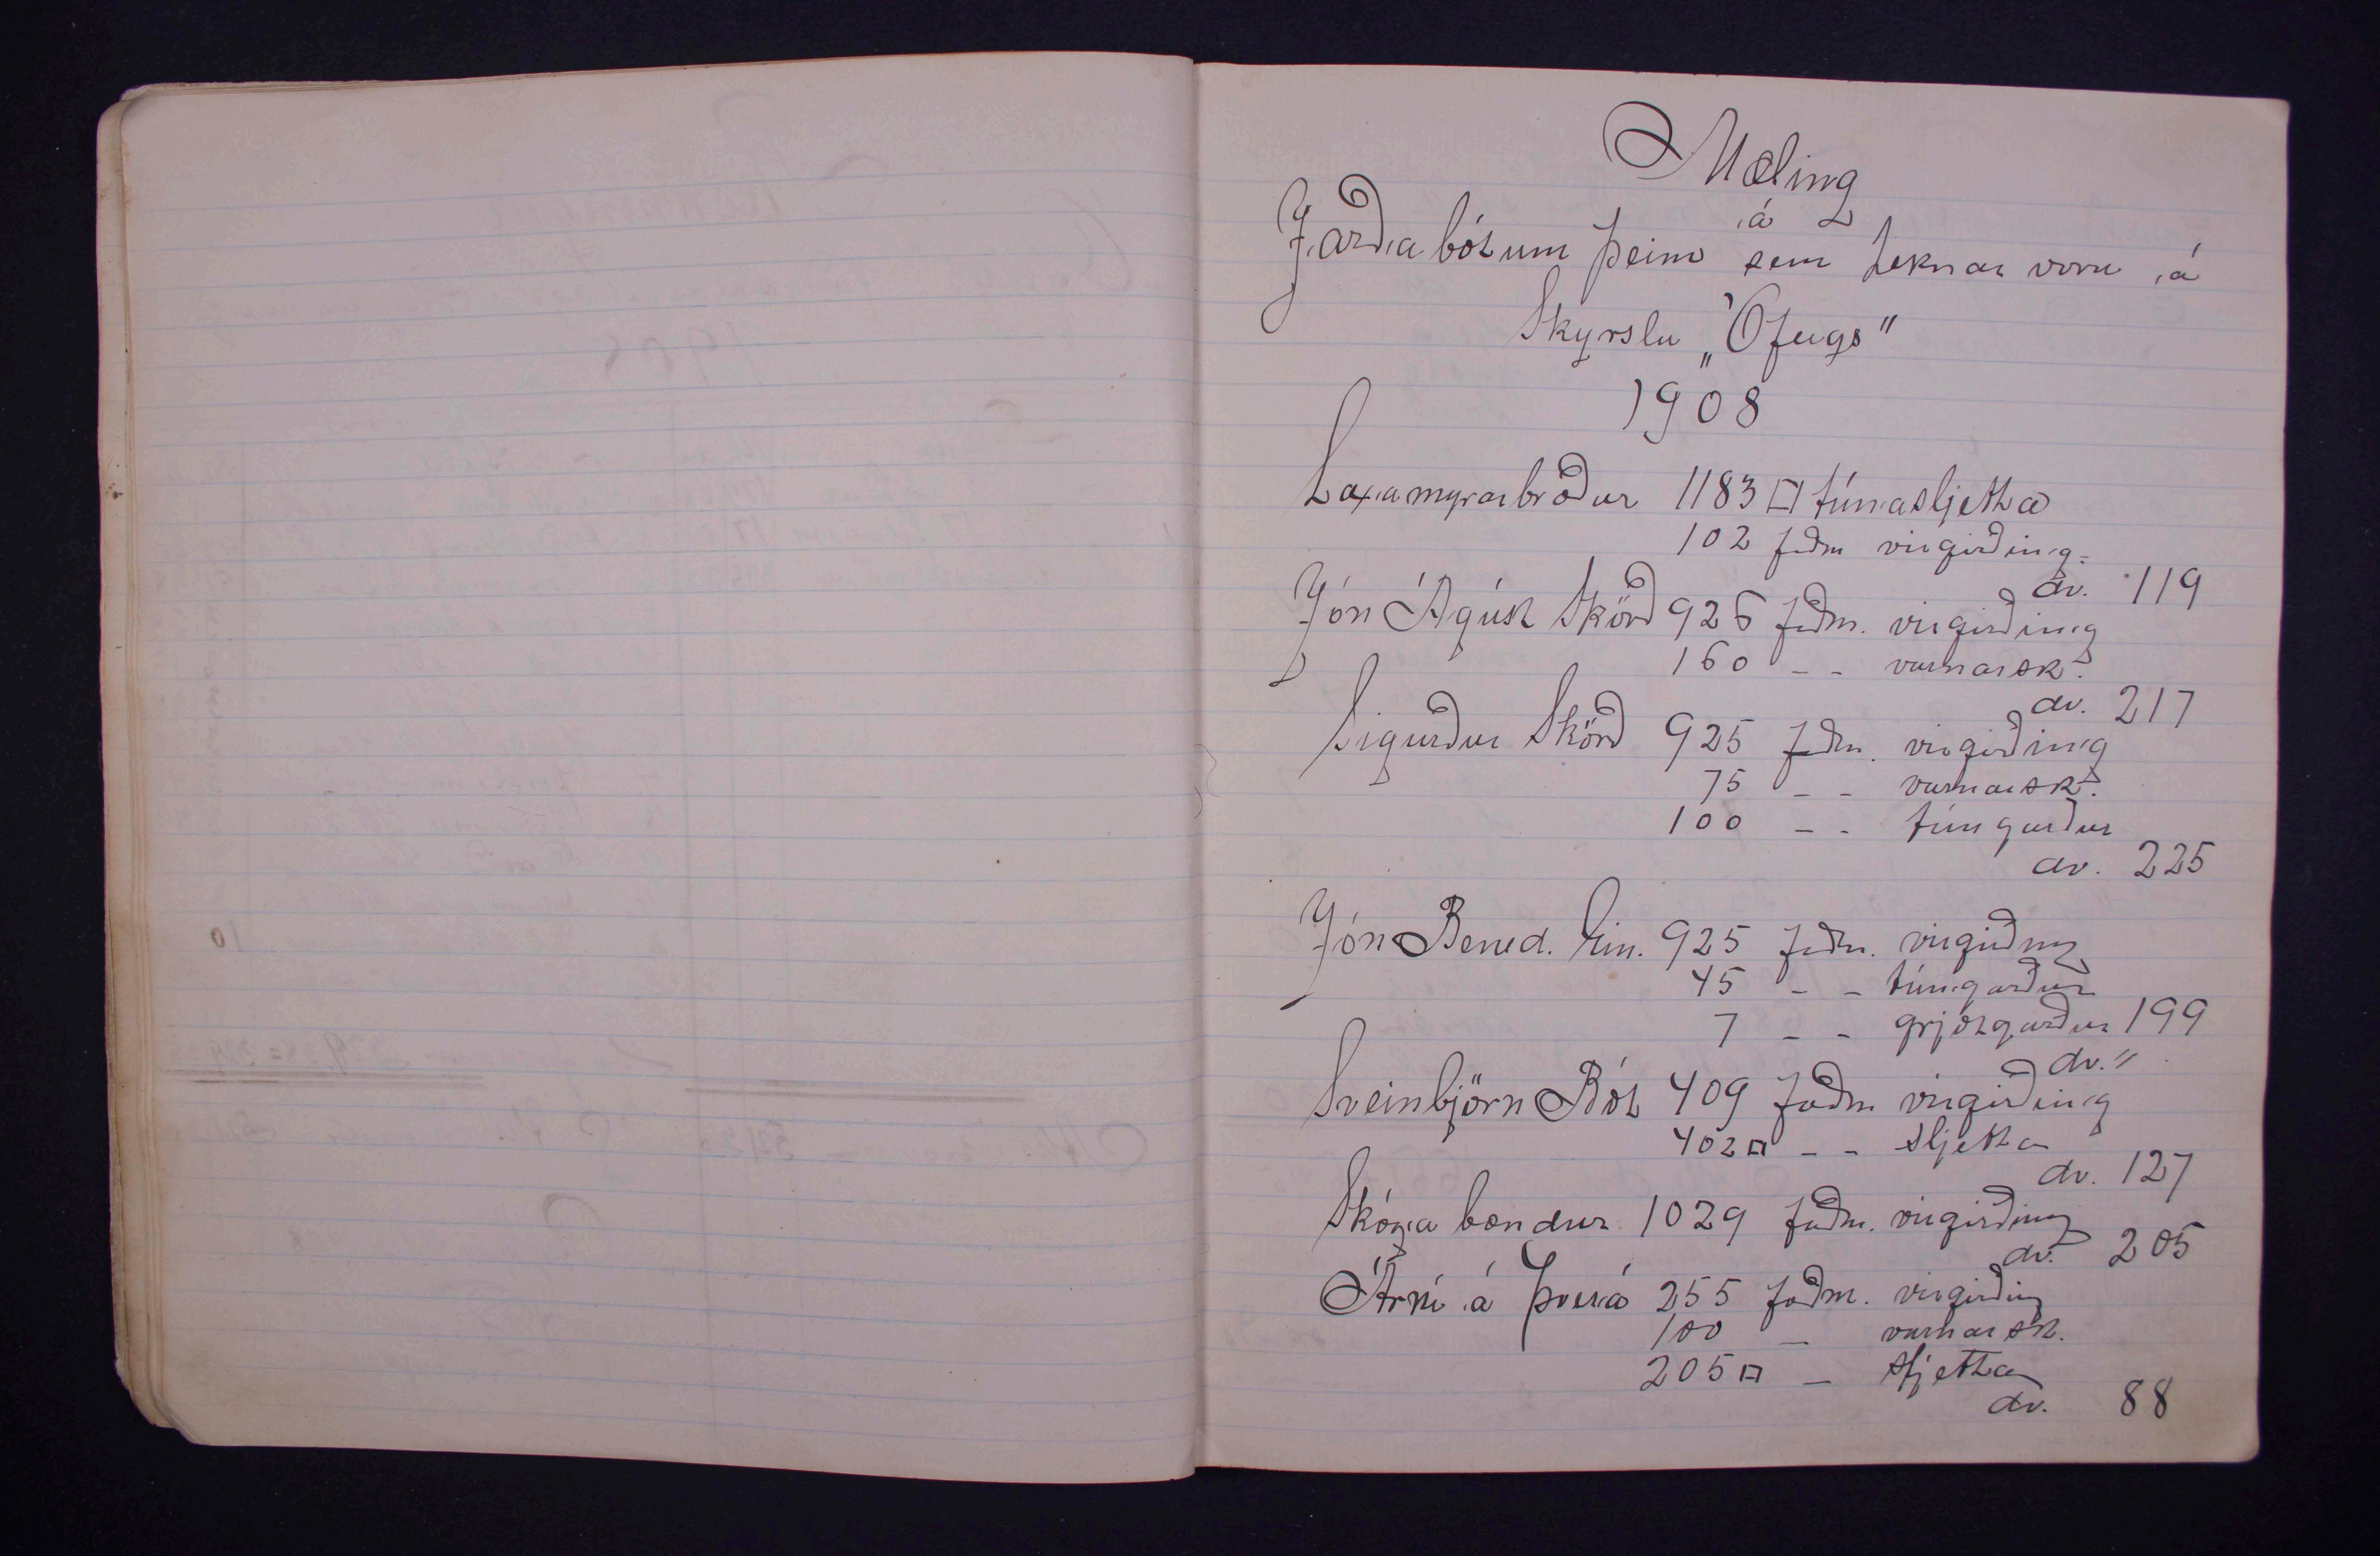 Mæling
á
Jarðabótum þeim sem teknar voru á
Skyrslu „Ófeigs"
1908
Laxamyrarbrœður 1183 □ túnasljetta
102 faðm virgirðing
dv. 119
Jón Ágúst Skörð 926 faðm. virgirðing
160 - - varnarsk.
dv. 217
Sigurður Skörð 925 faðm. virgirðing
75 - - varnarsk.
100 - - túngarður
dv. 225
Jón Bened. Ein. 925 faðm. virgirðing
45 - - túngarður
7 - - grjótgarður 199
dv. "
Sveinbjörn Bót 409 faðm virgirðing
402 □ - - sljetta
dv. 127
Skóga bændur 1029 faðm. virgirðing
dv. 205
Árni á Þverá 255 faðm. virgirðing
100 - varnarsk.
205 □ - sljetta
dv. 88